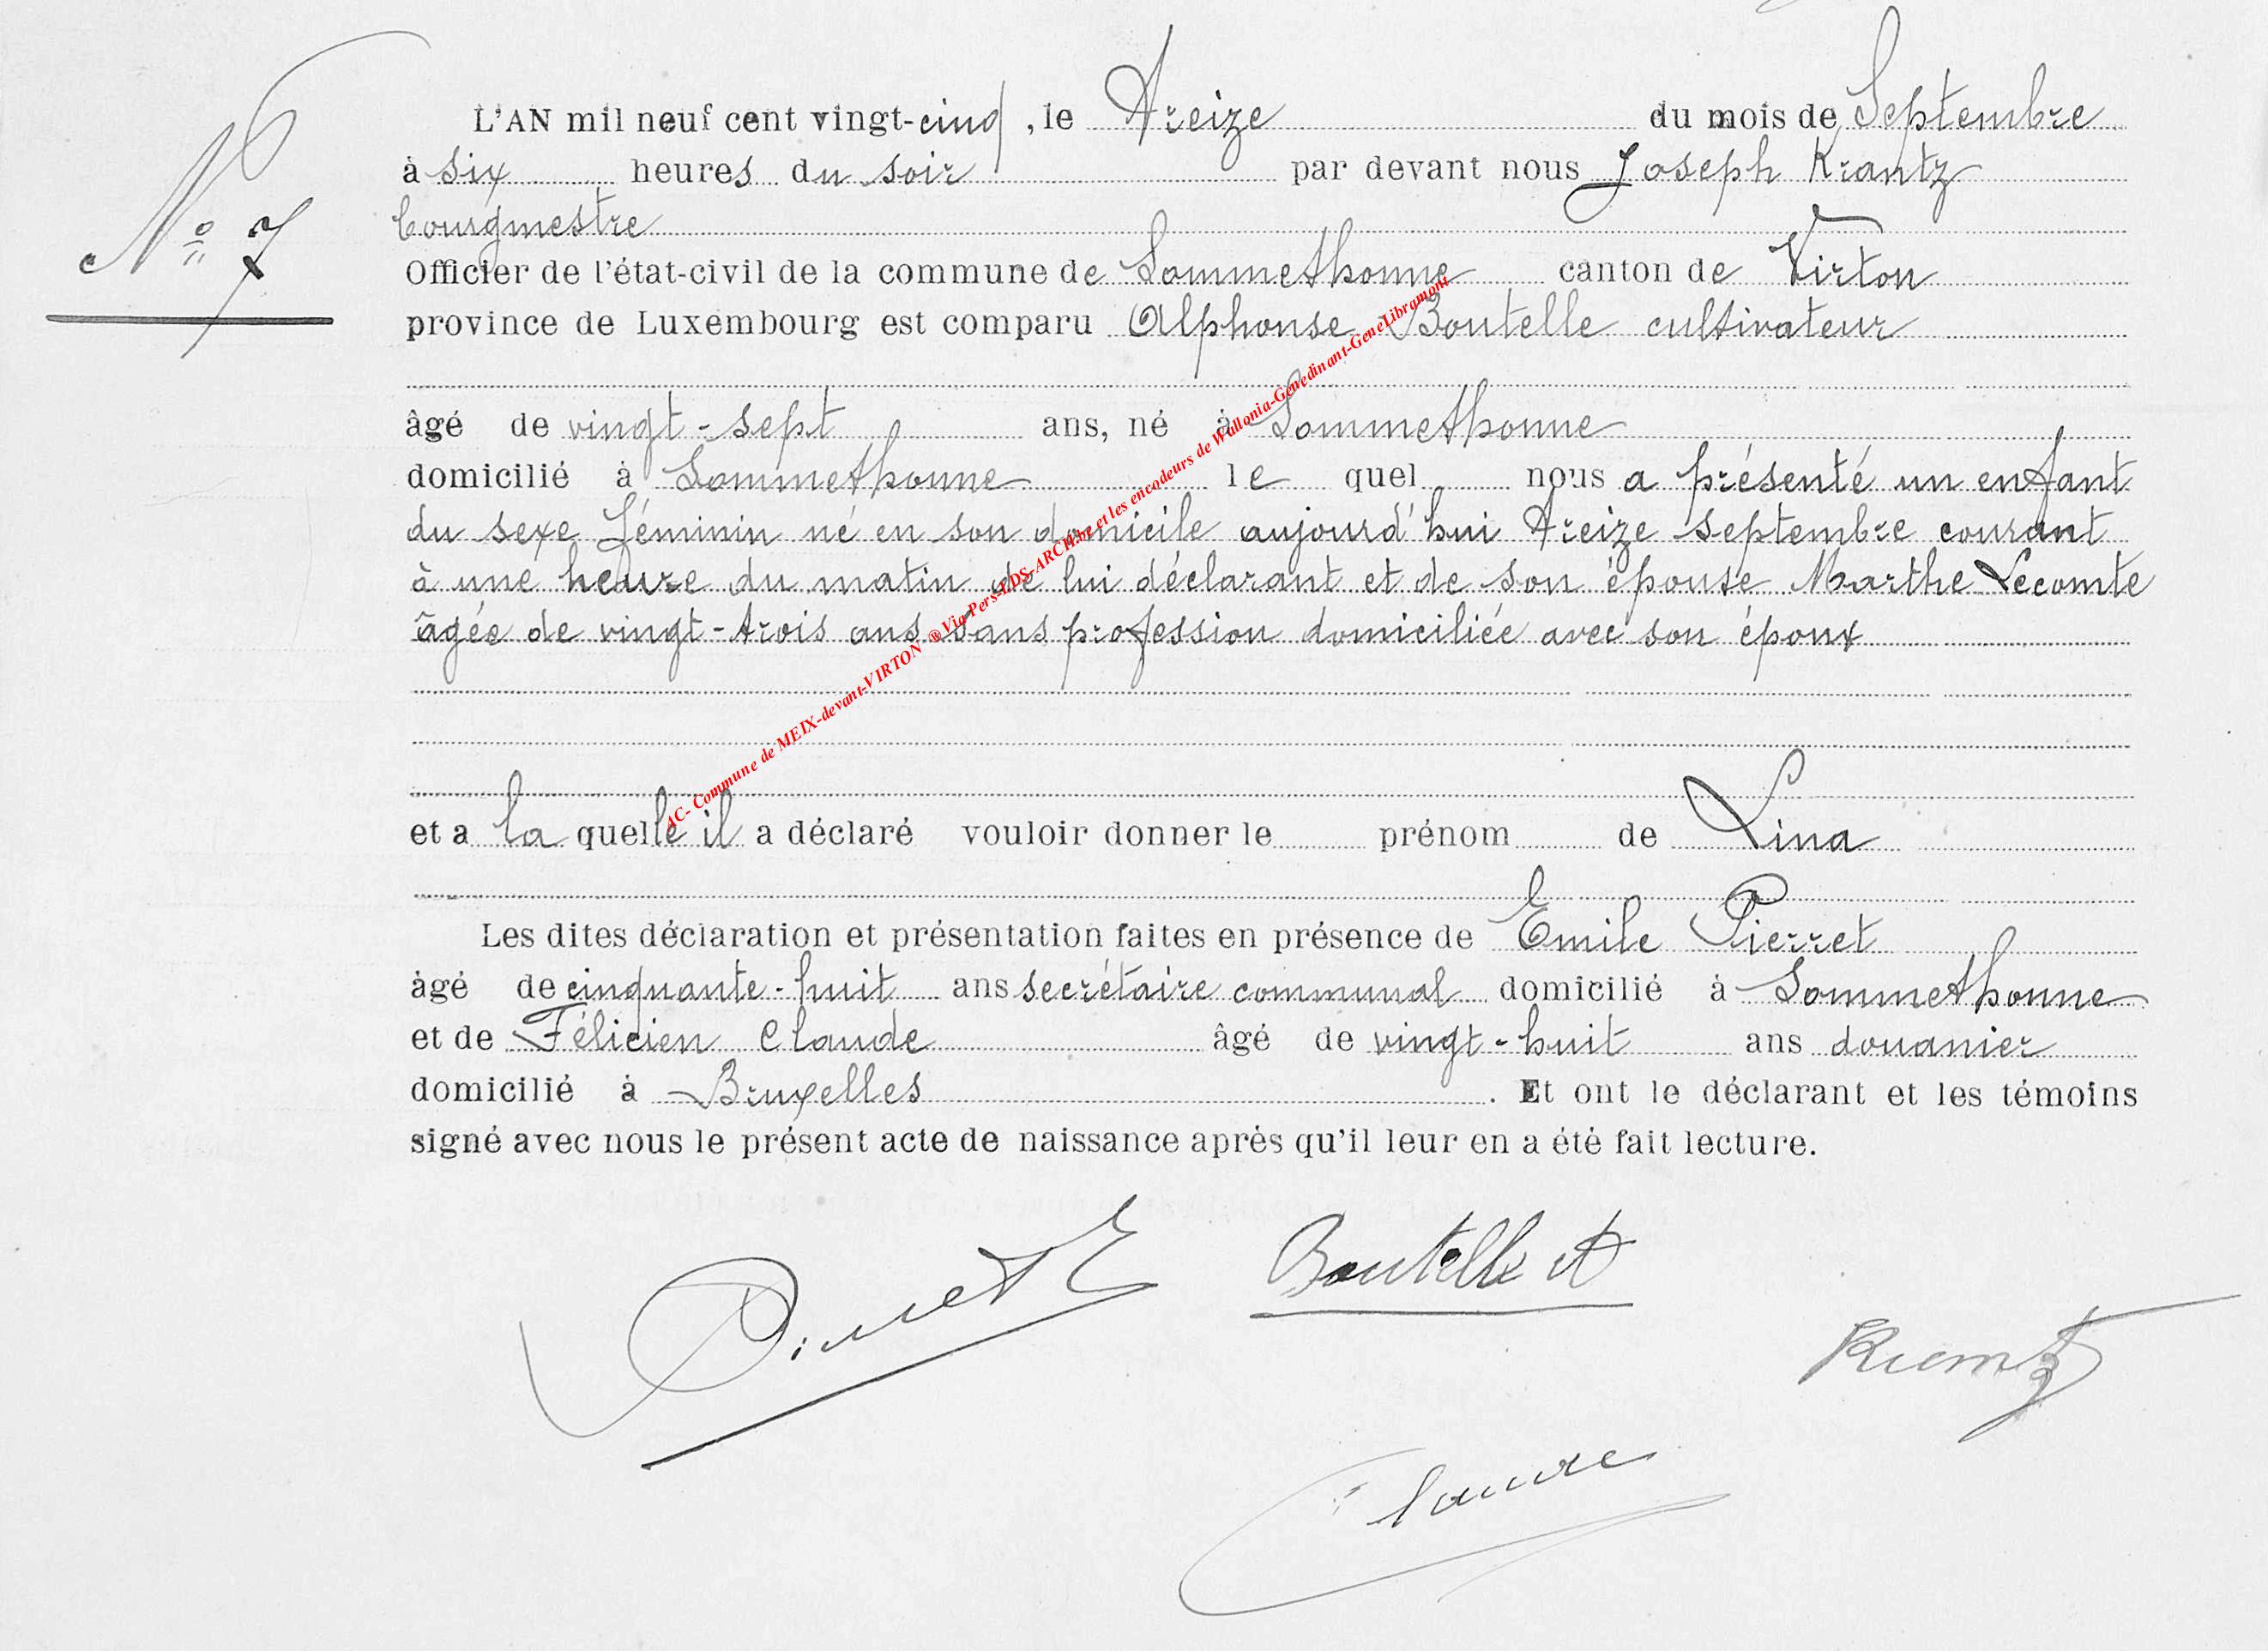 L'AN mil neuf cent vingt-cinq, le Treize du mois de Septembre
à six heures du soir par devant nous Joseph Krantz
bourgmestre
Officier de l'état-civil de la commune de Sommethonne canton de Virton
province de Luxembourg est comparu Alphonse Boutelle cultivateur
âgé de vingt-sept ans, né à Sommethonne
domicilié à Sommethonne le quel nous a présenté un enfant
du sexe féminin né en son domicile aujourd'hui treize septembre courant
à une heure du matin de lui déclarant et de son épouse Marthe Lecomte
âgée de vingt-trois ans sans profession domiciliée avec son époux
et a la quelle il a déclaré vouloir donner le prénom de Lina
Les dites déclaration et présentation faites en présence de Emile Pierret
âgé de cinquante-huit ans secrétaire communal domicilié à Sommethonne
et de Félicien Claude âgé de vingt-huit ans douanier
domicilié à Bruxelles. Et ont le déclarant et les témoins
signé avec nous le présent acte de naissance après qu'il leur en a été fait lecture.
No 7
AC- Commune de MEIX-devant-VIRTON ® Via Pers-LDS-ARCH.be et les encodeurs de Wallonia-Genedinant-GeneLibramont
Pierret E
Boutelle A
Krantz
Claude